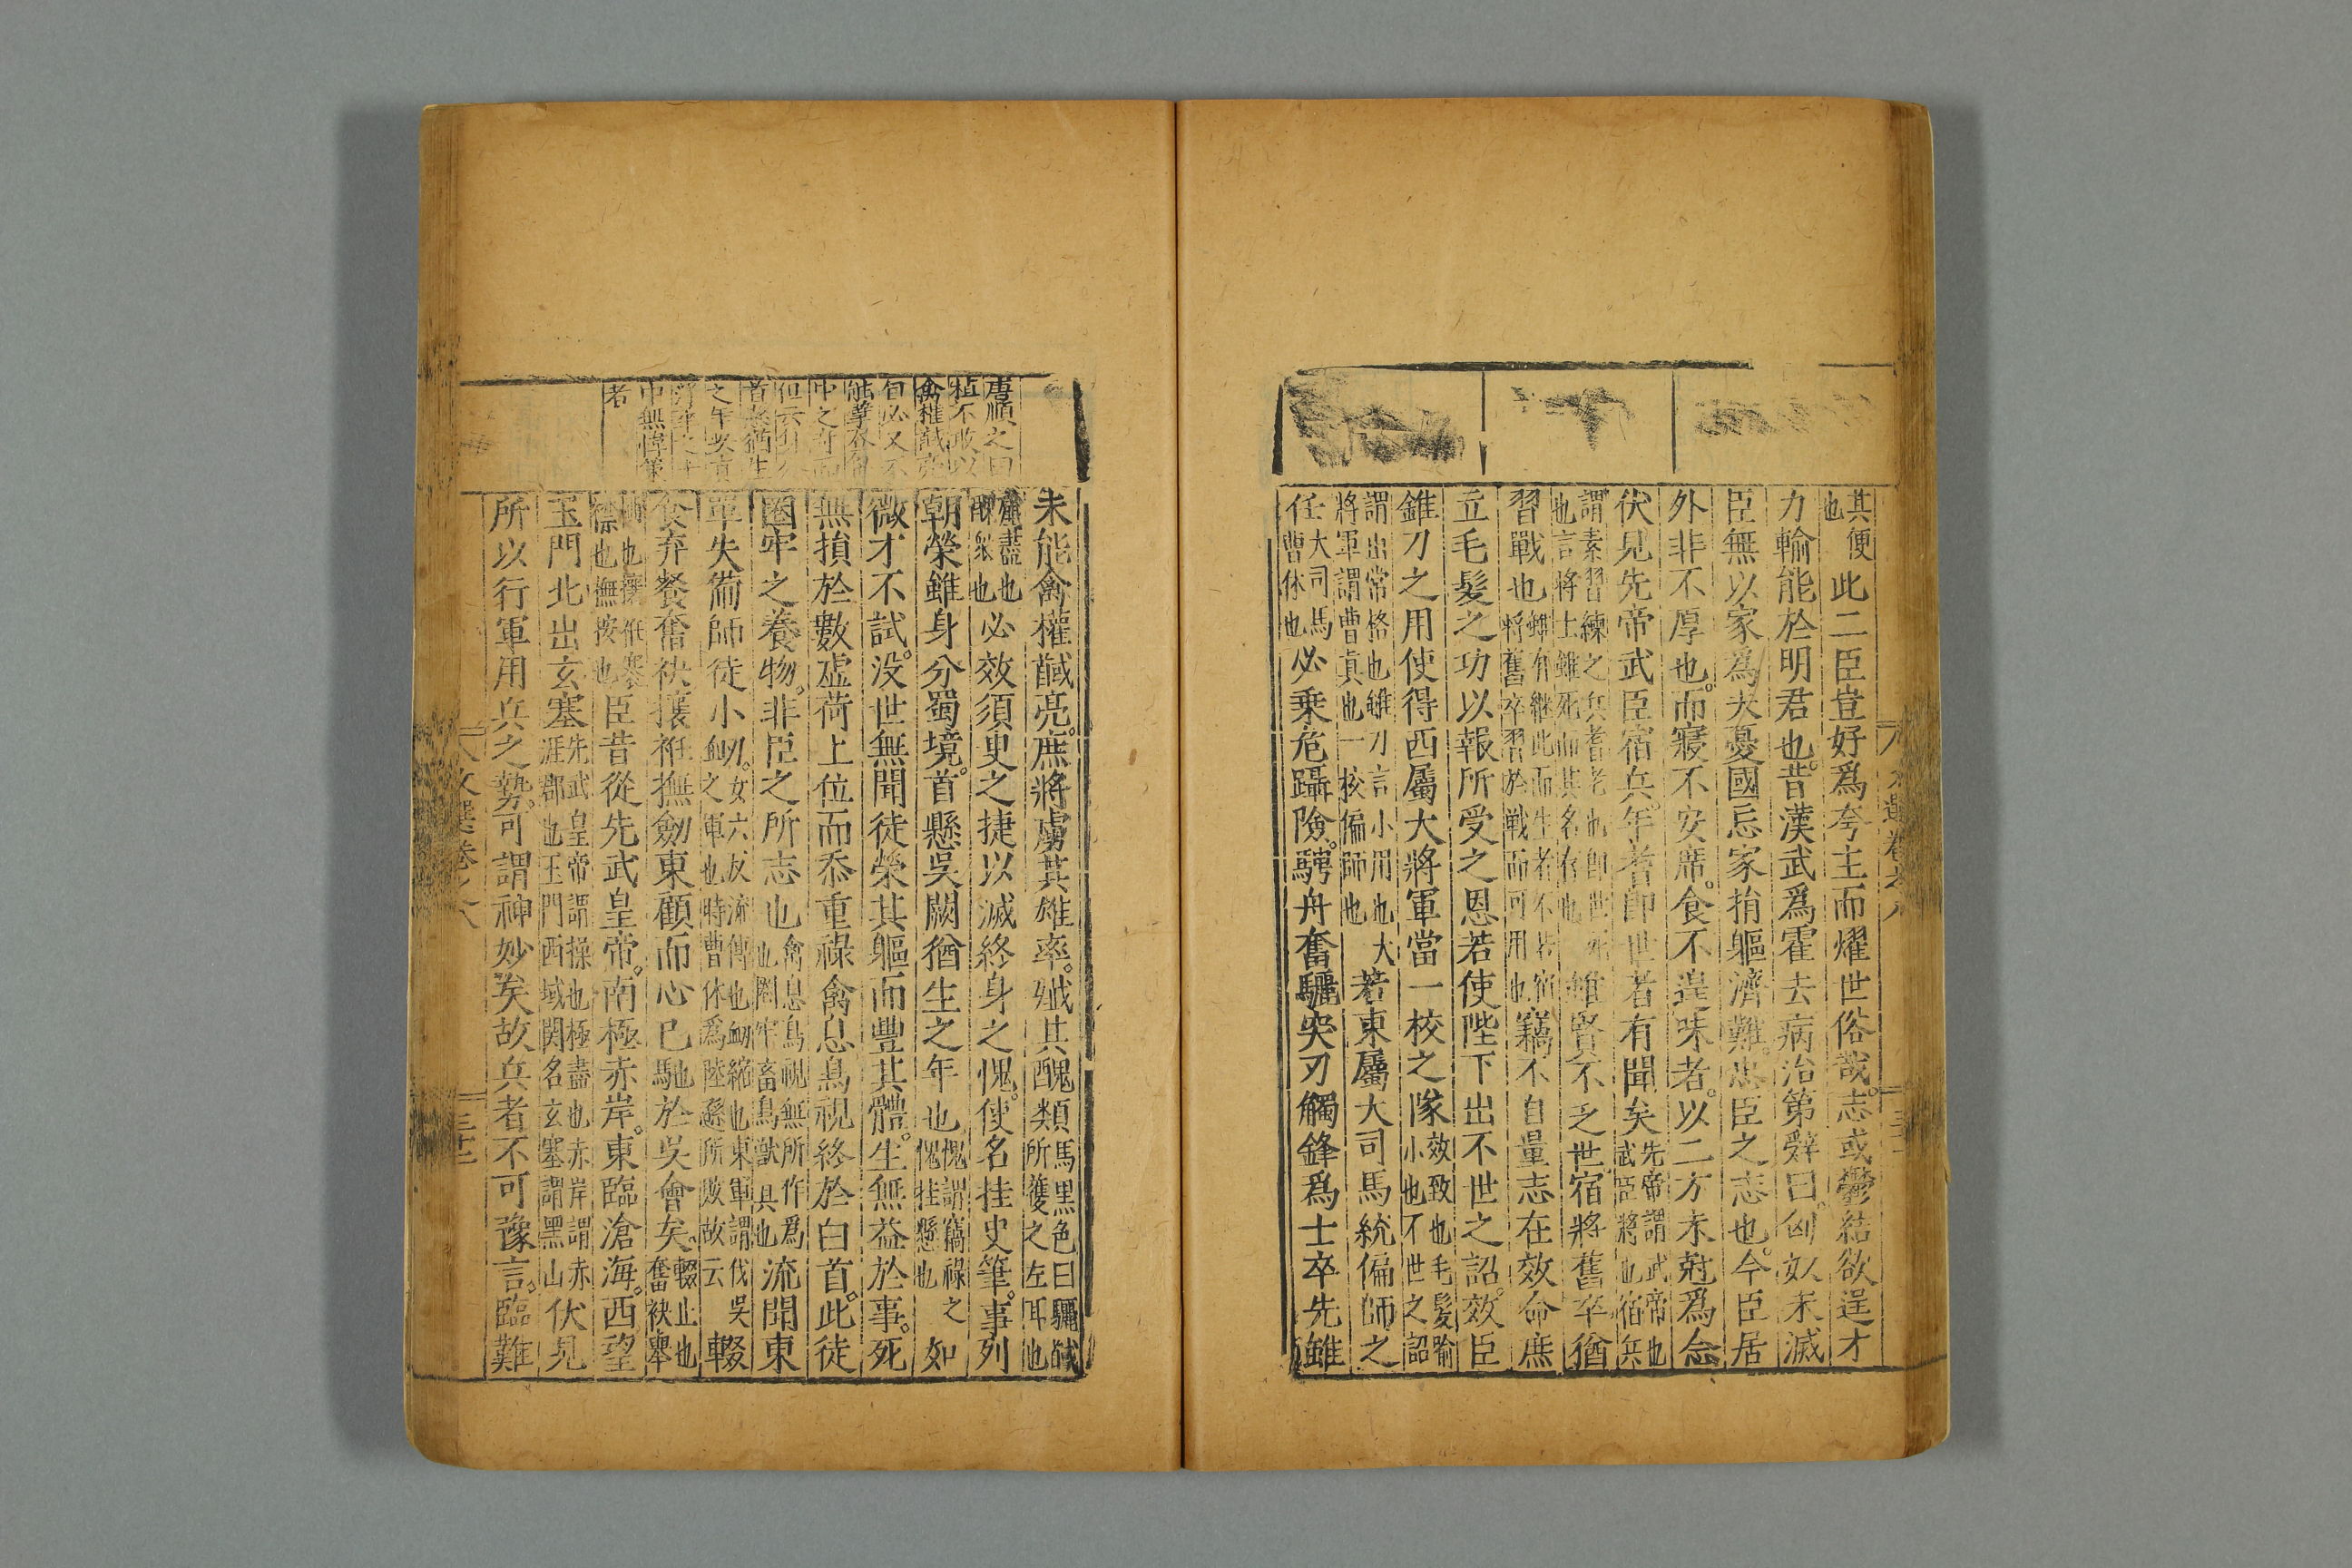 其便也此二臣豈好爲夸主而耀世俗哉志或鬱結欲逞才
力輸能於明君也昔漢武爲霍去病治第辭曰匈奴未滅
臣無以家爲夫憂國忘家捐軀濟難忠臣之志也今臣居
外非不厚也而寢不安席食不遑味者以二方未尅爲念
伏見先帝武臣宿兵年耆即世者有聞矣先帝謂武帝也武臣將也宿兵
謂素習練之兵耆老也即世死也言將士雖死而其名存也雖賢不乏世宿將舊卒猶
習戰也雖有繼此而生者不若宿將舊卒習於戦而可用也竊不自量志在效命庶
立毛髮之功以報所受之恩若使陛下出不世之詔效臣
錐刀之用使得西屬大將軍當一校之隊效致也毛髪喻小也不世之詔
謂出常格也錐刀言小用也大將軍謂曹真也一校偏師也若東屬大司馬統偏師之
任大司馬曹休也必乗危躡險騁舟奮驪突刃觸鋒爲士卒先雖
未能禽權馘亮庶將虜其雄率殱其醜類馬黒色曰驪馘所獲之左耳也
殱盡也醜衆也必效須史之捷以滅終身之愧使名挂史筆事列
朝榮雖身分蜀境首懸吳闕猶生之年也愧謂竊祿之愧挂懸也如
微才不試没世無聞徒榮其軀而豐其體生無益於事死
無損於數虚荷上位而忝重祿禽息鳥視終於白首此徒
圈牢之養物非臣之所志也禽息鳥視無所作爲也圈牢畜鳥獸具也流聞東
軍失備師徒小衂女六反流傳也衂縮也東軍謂伐吳之軍也時曹休爲陸遜所敗故云輟
食弃餐奮袂攘衽撫劒東顧而心已馳於吳會矣輟止也奮袂舉
袖也攘衽褰襟也撫按也臣昔從先武皇帝南極赤岸東臨滄海西望
玉門北出玄塞先武皇帝謂操也極盡也赤岸謂赤涯郡也玉門西域関名玄塞謂黒山伏見
所以行軍用兵之勢可謂神妙矣故兵者不可豫言臨難
唐順之曰
植不敢以
禽權馘亮
自必又不